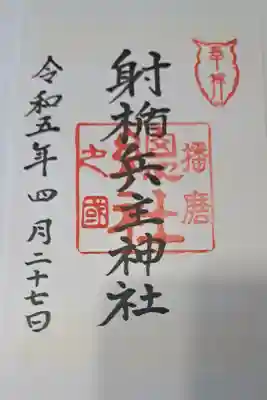 奉拝
播磨
射楯兵主神社
之國
令和五年四月二十七日